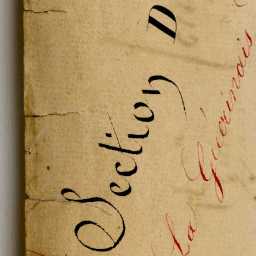 Section D
La Guérinais